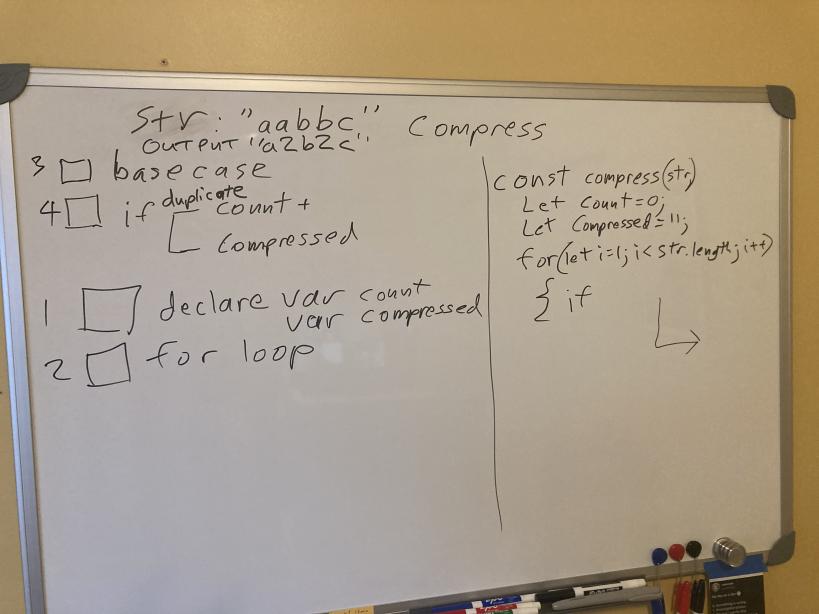 Str: "aabbc" Compress
OUTPUT "a2b2c"
3 base case
4 if duplicate count +
compressed
1 declare var count
var compressed
2 for loop
const compress(str)
Let Count=0;
Let Compressed='';
for(let i=1; i<str.length; i++)
{ if